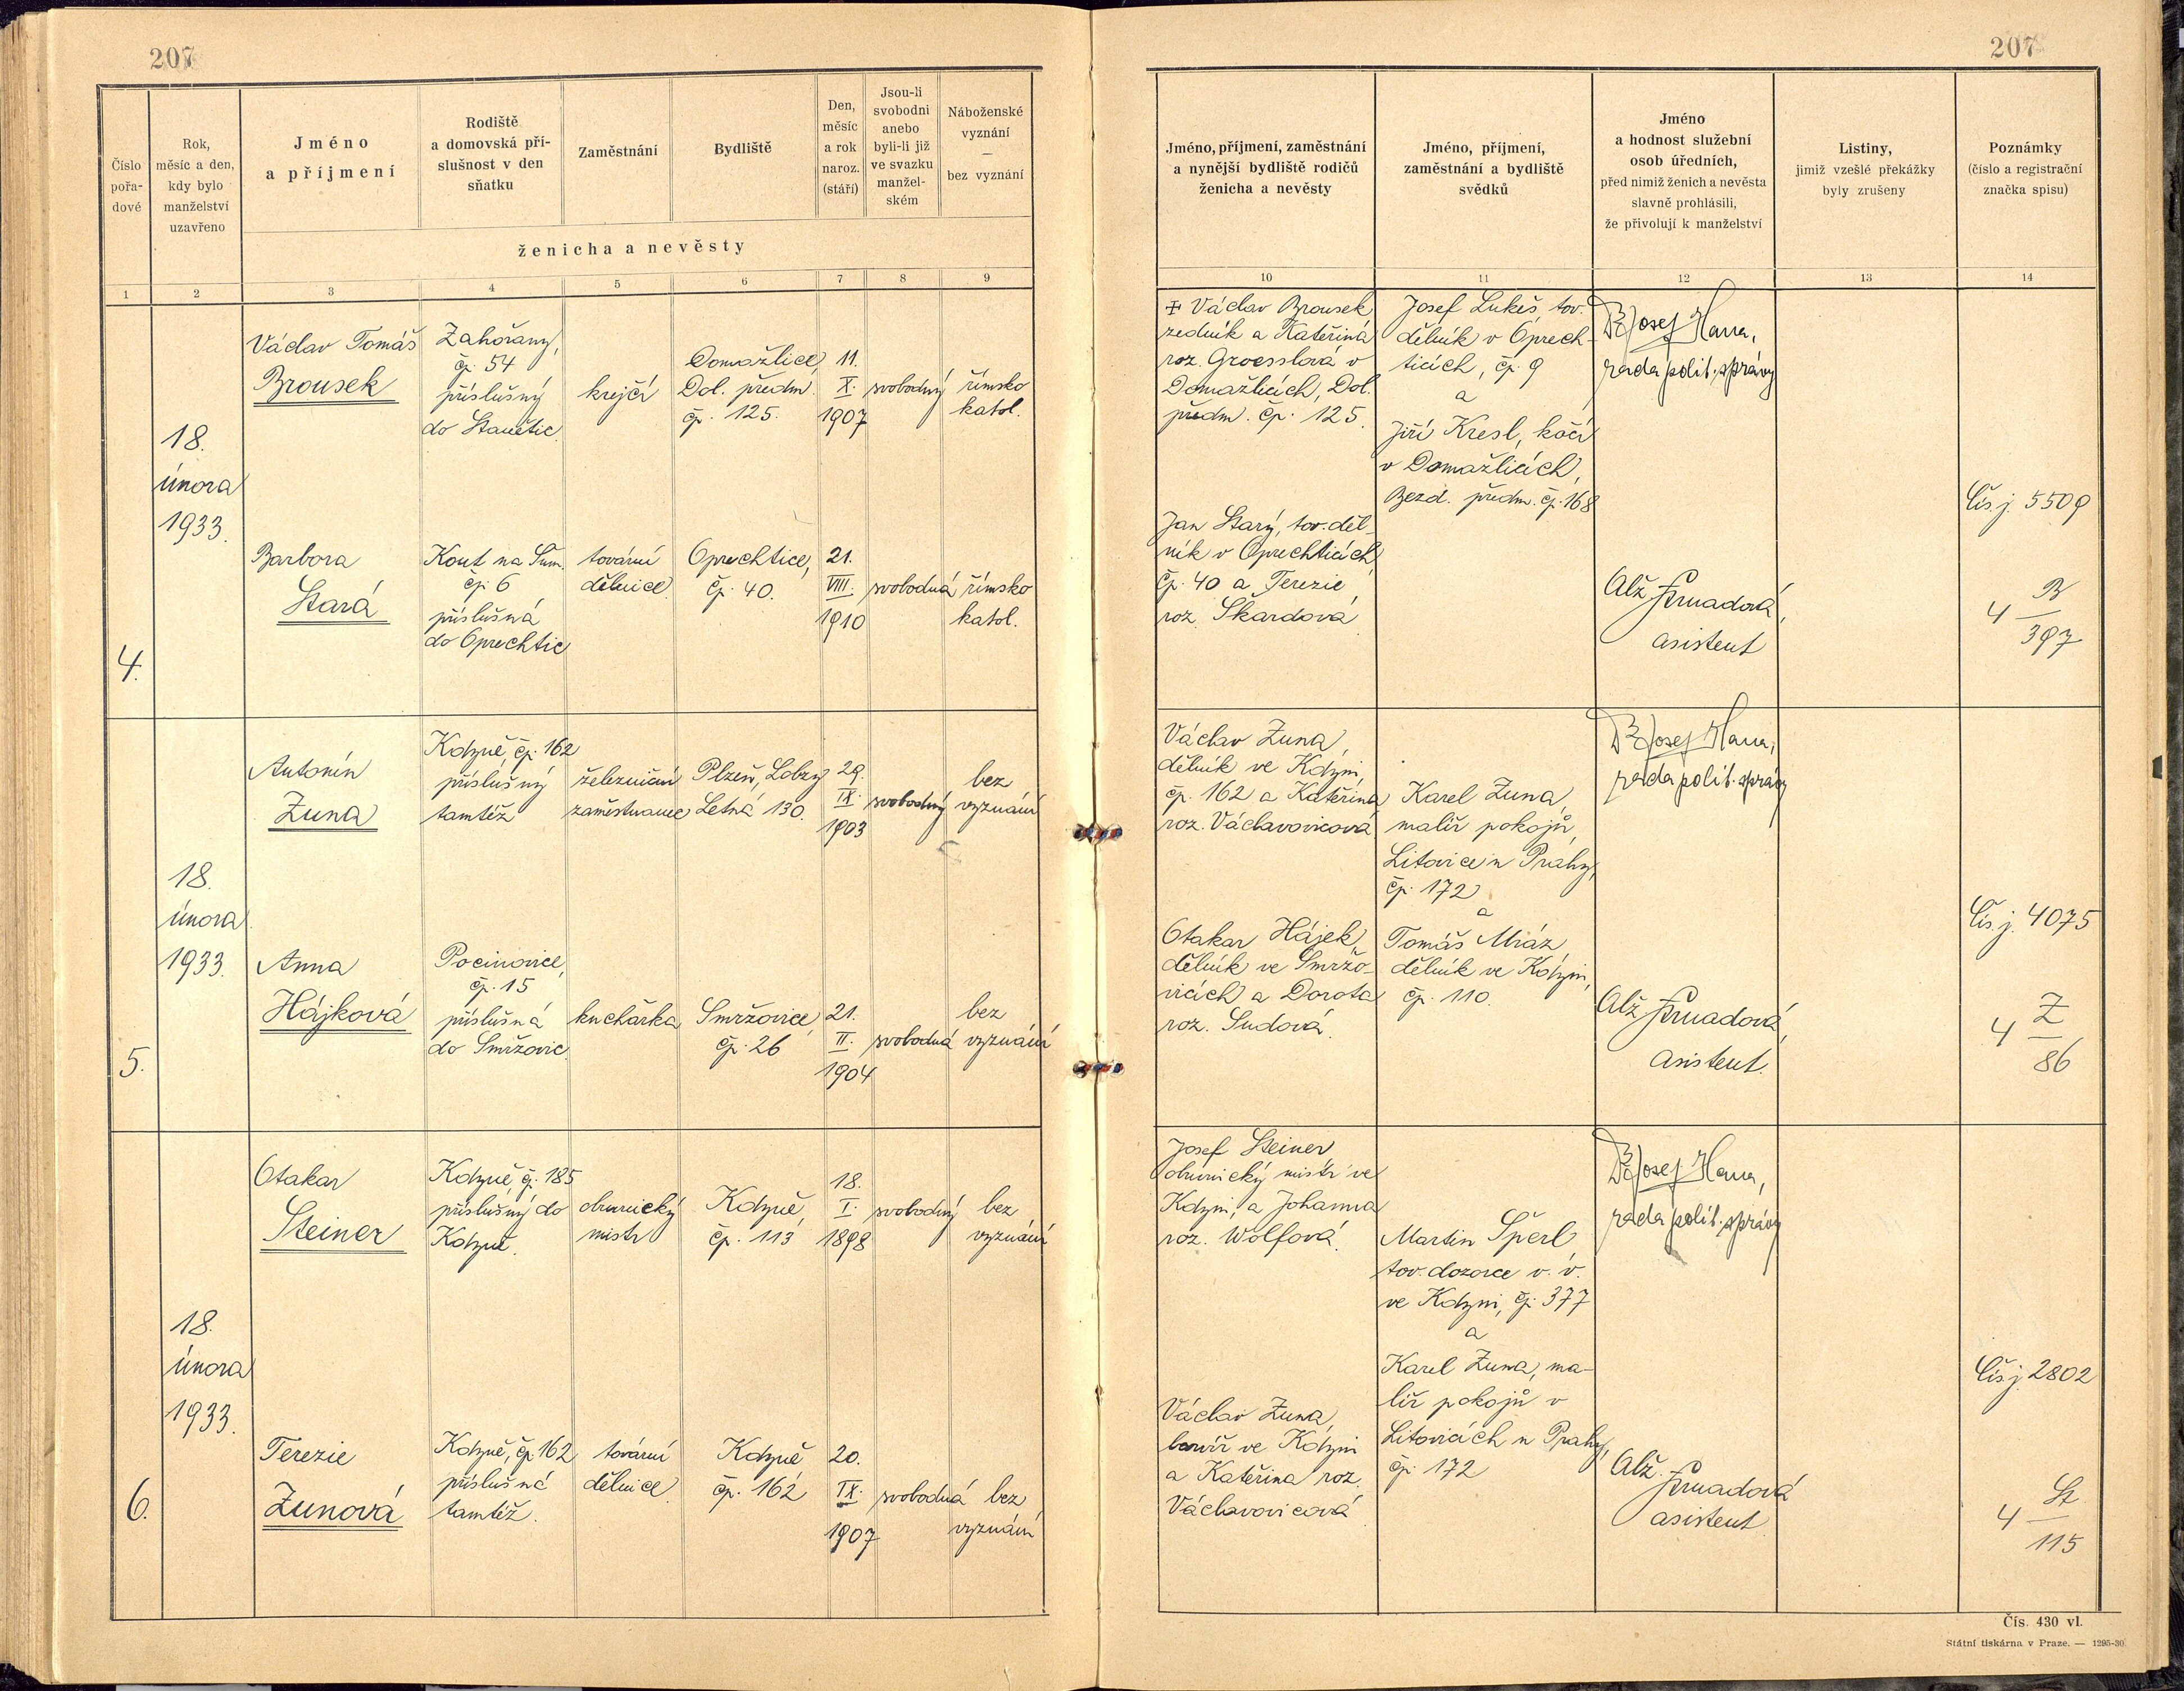 207
207
Číslo
pořa-
dové
Rok,
měsíc a den,
kdy bylo
manželství
uzavřeno
Jméno
a příjmení
Rodiště
a domovská pří-
slušnost v den
sňatku
Zaměstnání
Bydliště
Den,
měsíc
a rok
naroz.
(stáří)
Jsou-li
svobodni
anebo
byli-li již
ve svazku
manžel-
ském
Náboženské
vyznání
—
bez vyznání
ženicha a nevěsty
Jméno, příjmení, zaměstnání
a nynější bydliště rodičů
ženicha a nevěsty
Jméno, příjmení,
zaměstnání a bydliště
svědků
Jméno
a hodnost služební
osob úředních,
před nimiž ženich a nevěsta
slavně prohlásili,
že přivolují k manželství
Listiny,
jimiž vzešlé překážky
byly zrušeny
Poznámky
(číslo a registrační
značka spisu)
1 2 3 4 5 6 7 8 9 10 11 12 13 14
4.
18.
února
1933.
Václav Tomáš
Brousek
Zahořany,
čp. 54
příslušný
do Stanětic
krejčí
Domažlice,
Dol. předm.
čp. 125.
11.
X.
1907
svobodný
římsko
katol.
Barbora
Stará
Kout na Šum.
čp. 6
příslušná
do Oprechtic
tovární
dělnice
Oprechtice,
čp. 40.
21.
VIII.
1910
svobodná
římsko
katol.
‡ Václav Brousek
zedník a Kateřina
roz. Groesslová v
Domažlicích, Dol.
předm. čp. 125.
Jan Starý, tov. děl-
ník v Oprechticích,
čp. 40 a Terezie,
roz. Škardová
Josef Lukeš, tov.
dělník v Oprech-
ticích, čp. 9
a
Jiří Kresl, kočí
v Domažlicích,
Bezd. předm. čp. 168
Josef Hana,
rada polit. správy
Alž.
asistent
Čís. j. 5509
B
4 —
397
5.
18.
února
1933.
Antonín
Zuna
Kdyně, čp. 162
příslušný
tamtéž
železniční
zaměstnanec
Plzeň, Lobzy
Letná 130.
29.
IX.
1903
svobodný
bez
vyznání
Anna
Hájková
Pocinovice,
čp. 15
příslušná
do Smržovic
kuchařka
Smržovice,
čp. 26
21.
II.
1904
svobodná
bez
vyznání
Václav Zuna,
dělník ve Kdyni,
čp. 162 a Kateřina
roz. Václavovicová
Otakar Hájek,
dělník ve Smržo-
vicích a Dorota
roz. Sudová.
Karel Zuna,
malíř pokojů,
Litovice u Prahy,
čp. 172
a
Tomáš Mráz
dělník ve Kdyni,
čp. 110.
Josef Hana,
rada polit. správy
Alž.
asistent.
Čís. j. 4075
Z
4 —
86
6.
18.
února
1933.
Otakar
Steiner
Kdyně čp. 185
příslušný do
Kdyně.
obuvnický
mistr
Kdyně,
čp. 113
18.
I.
1898
svobodný
bez
vyznání
Terezie
Zunová
Kdyně, čp. 162
příslušná
tamtéž.
tovární
dělnice
Kdyně
čp. 162
20.
IX.
1907
svobodná
bez
vyznání
Josef Steiner
obuvnický mistr ve
Kdyni, a Johanna
roz. Wolfová.
Václav Zuna,
barvíř ve Kdyni
a Kateřina roz.
Václavovicová
Martin Šperl,
tov. dozorce v. v.
ve Kdyni, čp. 377
a
Karel Zuna, ma-
líř pokojů v
Litovicích u Prahy,
čp. 172
Josef Hana,
rada polit. správy
Alž.
asistent
Čís. j. 2802
St
4 —
115
Čís. 430 vl.
Státní tiskárna v Praze. — 1295-30